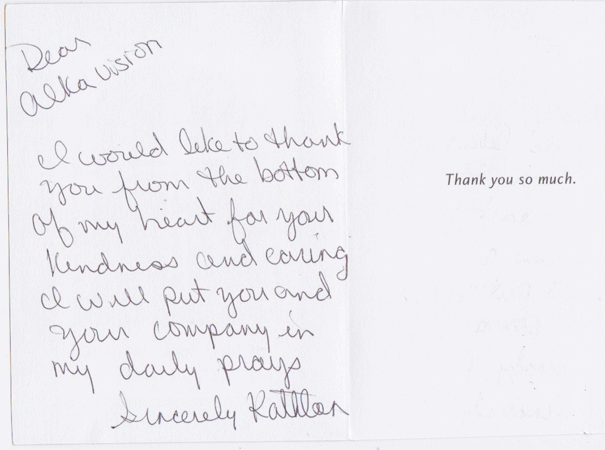 Dear
alkavision
I would like to thank
you from the bottom
of my heart for your
kindness and caring
I will put you and
your company in
my daily prays
Sincerely Kathleen
Thank you so much.